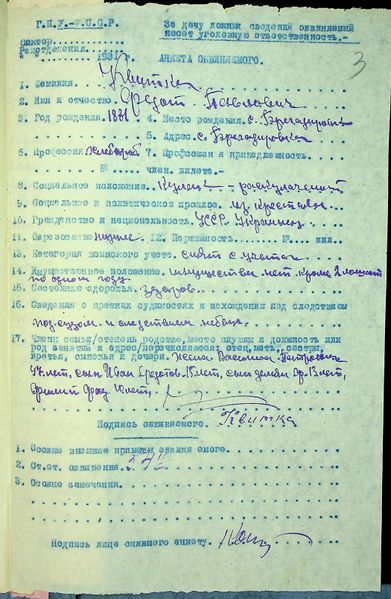 Г.П.У.-У.С.С.Р.
За дачу ложных сведений обвиняемый
несет уголовную ответственность.-
Сектор
Райотделение. 1931 г.
АНКЕТА ОБВИНЯЕМОГО.
3
1. Фамилия. Квитка
2. Имя и отчество. Федот Павлович
3. Год рождения. 4. Место рождения. с. Бригадировка
5. Адрес. с. Бригадировка
6. Профессия Хлебороб 7. Профсоюзн я принадлежность.
№ член. билета.-
8. Социальное положение. Кулак - раскулаченный
9. Социальное и политическое прошлое. из крестьян
10. Гражданство и национальность. УССР. Украинец
11. Образование низшее 12. Партийность. № бил.
13. Категория воинского учета. снят с учета
14. Имущественное положение. имущества нет кроме 2 лошадей
15. Состояние здоровья. здоров.
16. Сведения о прежних судимостях и нахождении под следствием
под судом и следствием не был
17. Члены семьи/степень родства, место службы и должность или
род занятий и адрес/перечисляются: отец, мать, сестры,
братья, сыновья и дочери.
47 лет, сын Иван 15 лет, сын 13 лет,
10 лет.
Квитка
Подпись обвиняемого.
1. Особые внешние приметы обвиня емого.
2. Ст.ст. обвинения.
3. Особые замечания.
Подпись лица снявшего анкету.